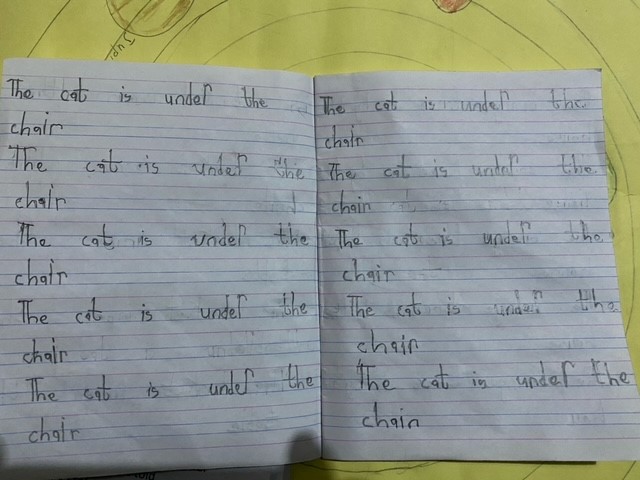 Jupi
The cat is under the
chair
The cat is under the
chair
The cat is under the
chair
The cat is under the
chair
The cat is under the
chair
The cat is under the
chair
The cat is under the
chair
The cat is under the
chair
The cat is under the
chair
The cat is under the
chair